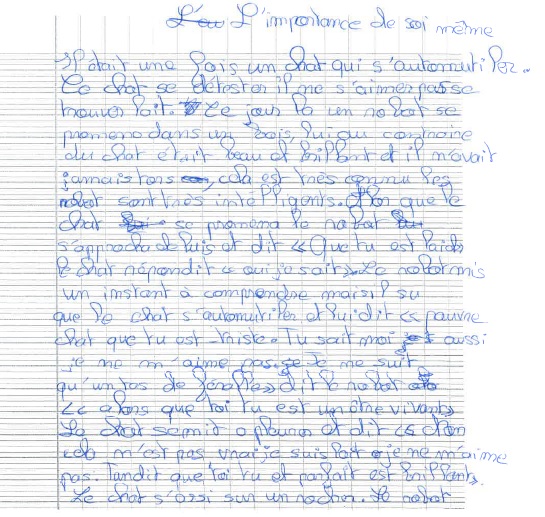 L'importance de soi même
Il était une fois un chat qui s'automutiler..
Ce chat se détester il ne s'aimer pas se
trouver lait. Ce jour la un robot se
promena dans un bois, lui au contraire
du chat était beau et brillant et il n'avait
jamais tors, cela est très connu les
robot sont très intelligents. Alor que le
chat se promena le robot
s'approcha de luis et dit « Que tu est laid»
le chat répondit « oui je sait». Le robot mis
un instant à comprendre mais il su
que le chat s'automutiler et lui dit « pauvre
chat que tu est triste. Tu sait moi aussi
je ne m'aime pas. Je ne suit
qu'un tas de feraille» dit le robot
« alors que toi tu est un être vivant»
Le chat se mit a pleurer et dit « c'ton
cela n'est pas vrai je suis lait je ne m'aime
pas. Tandit que toi tu et parfait est brillant».
Le chat s'assi sur un rocher. Le robot